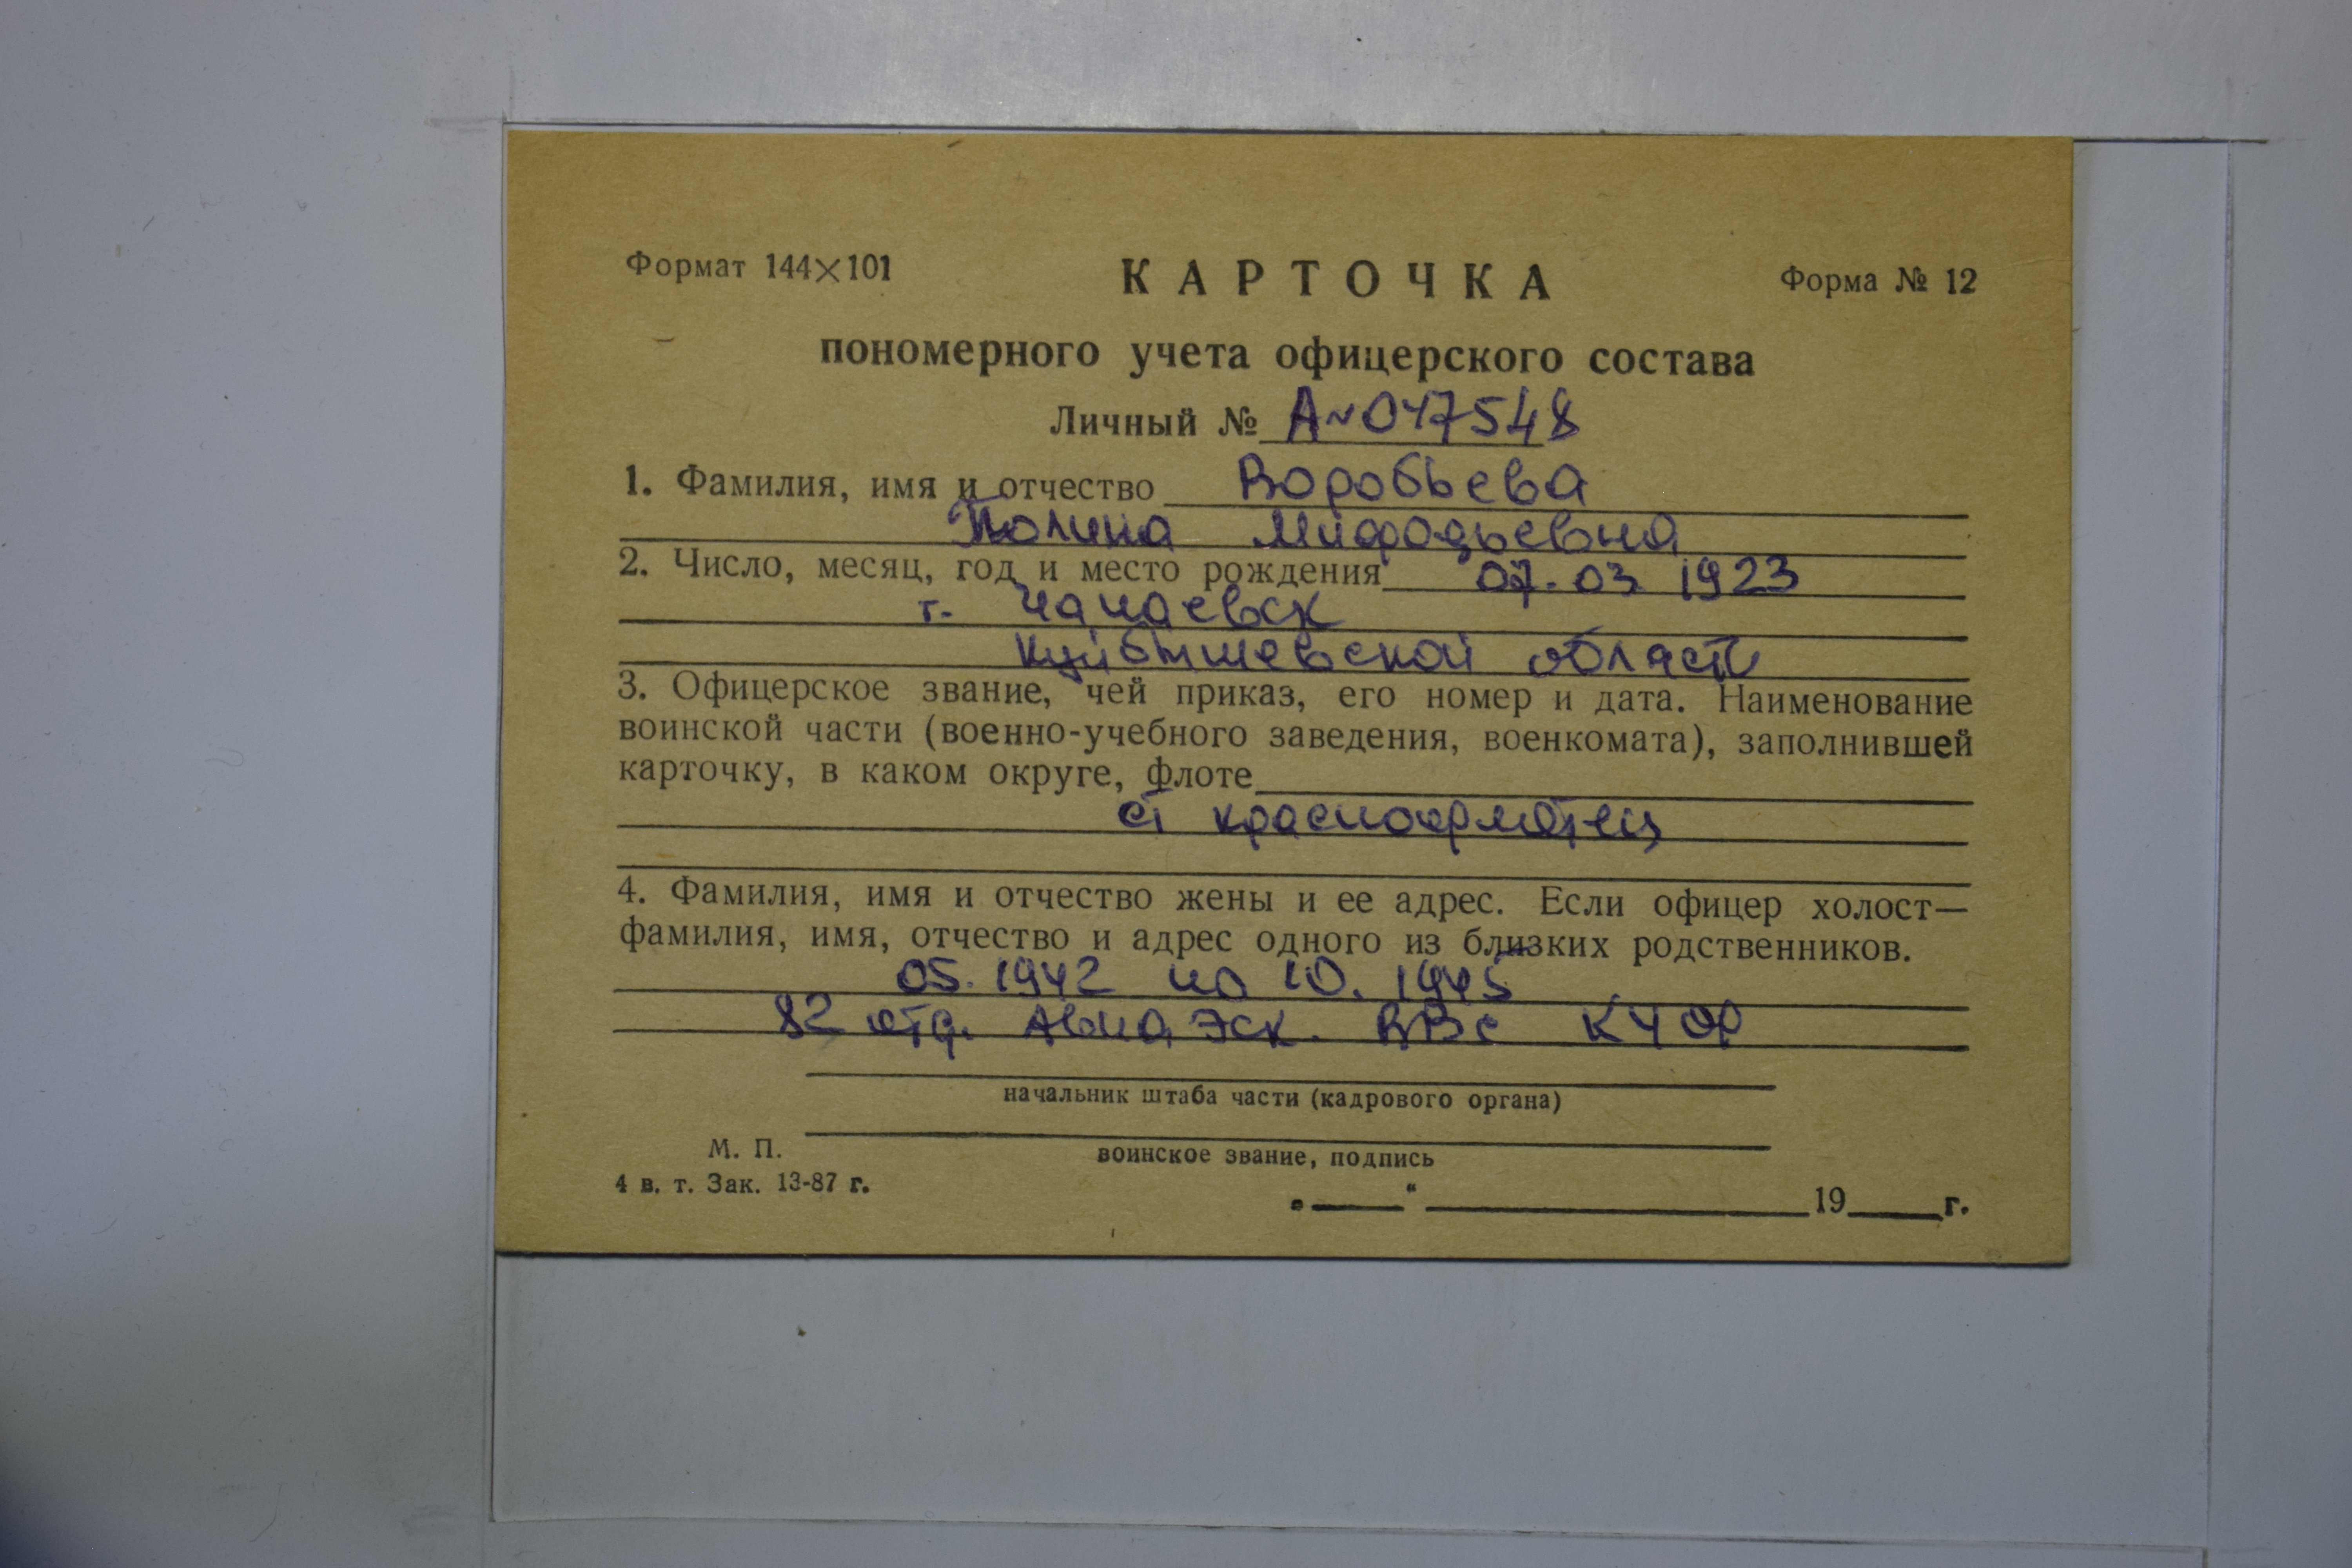 Формат 144×101 КАРТОЧКА Форма № 12
пономерного учета офицерского состава
Личный № А~047548
1. Фамилия, имя и отчество Воробьева
Полина Мифодьевна
2. Число, месяц, год и место рождения 07.03 1923
г. Чапаевск
Куйбышевской области
3. Офицерское звание, чей приказ, его номер и дата. Наименование
воинской части (военно-учебного заведения, военкомата), заполнившей
карточку, в каком округе, флоте
ст красноарметец
4. Фамилия, имя и отчество жены и ее адрес. Если офицер холост—
фамилия, имя, отчество и адрес одного из близких родственников.
05.1942 по 10.1945
82 отд. Авиа Эск. ВВС КЧФ
начальник штаба части (кадрового органа)
М. П.
воинское звание, подпись
4 в. т. Зак. 13-87 г.
„ “ 19 г.